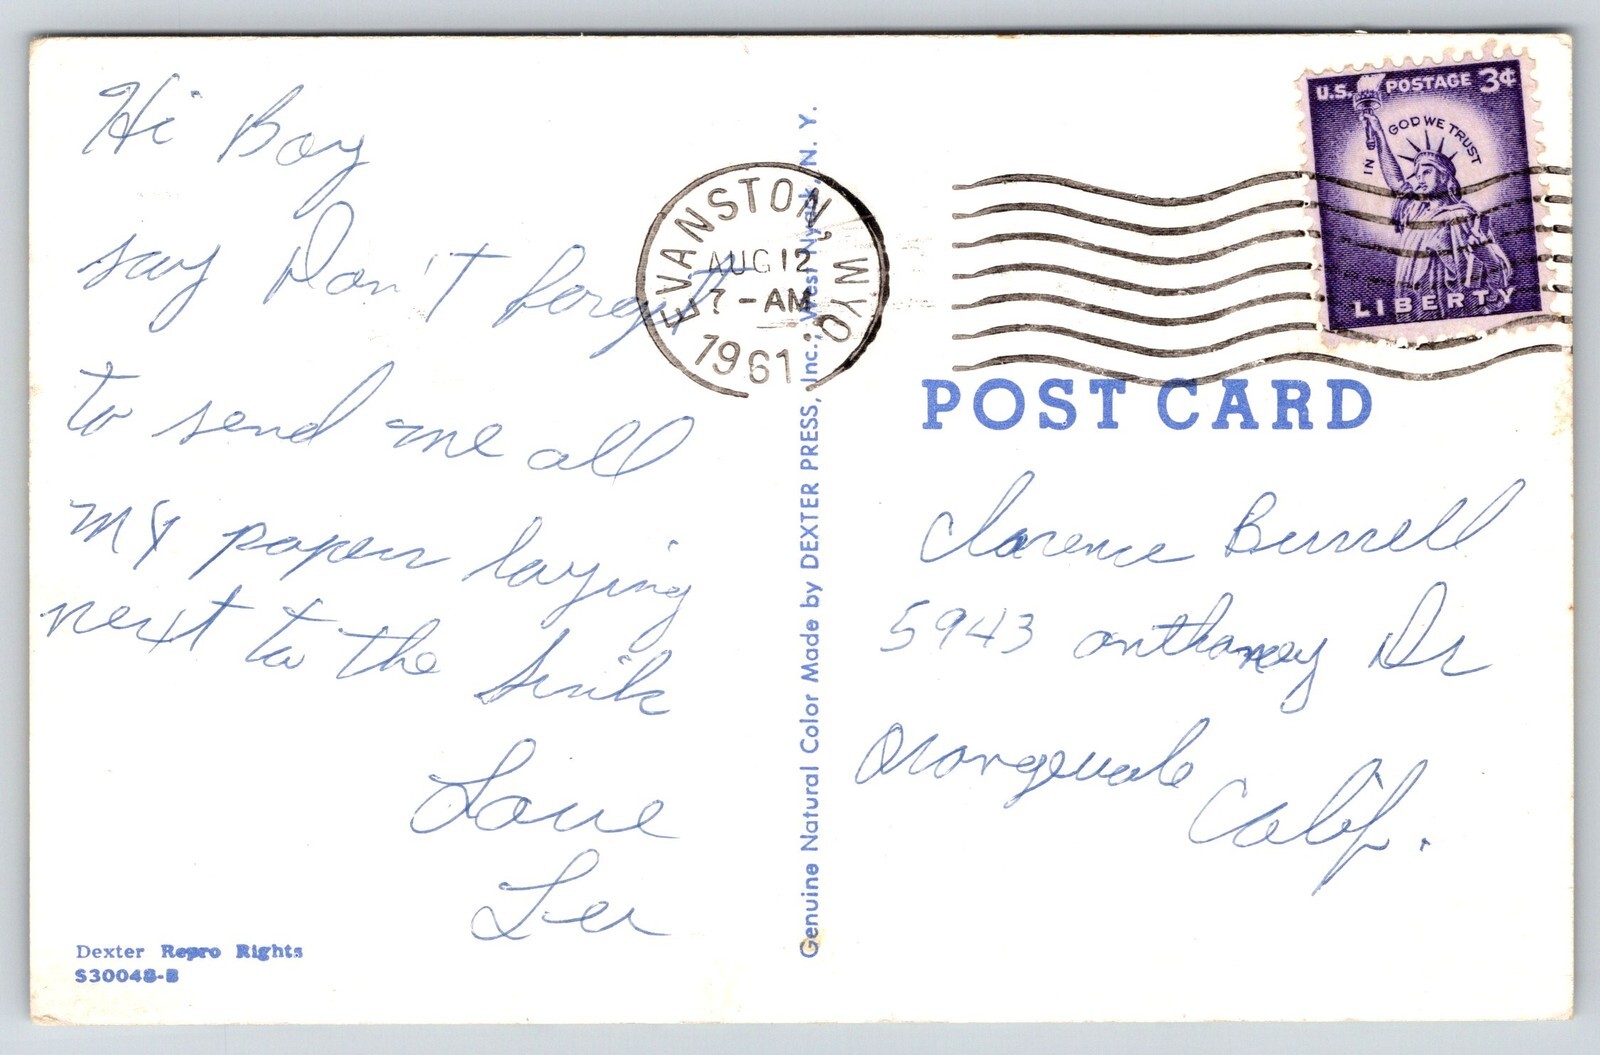 Hi Boy
say Don't forget
to send me all
my papers laying
next to the sink
Love
Lee
Dexter Repro Rights
S30048-B
Genuine Natural Color Made by DEXTER PRESS, Inc., West Nyack, N. Y.
EVANSTON, WYO.
AUG 12
7 - AM
1961
U.S. POSTAGE 3¢
IN GOD WE TRUST
LIBERTY
POST CARD
Clarence Burrell
5943 anthoney Dr
Orangevale
Calif.